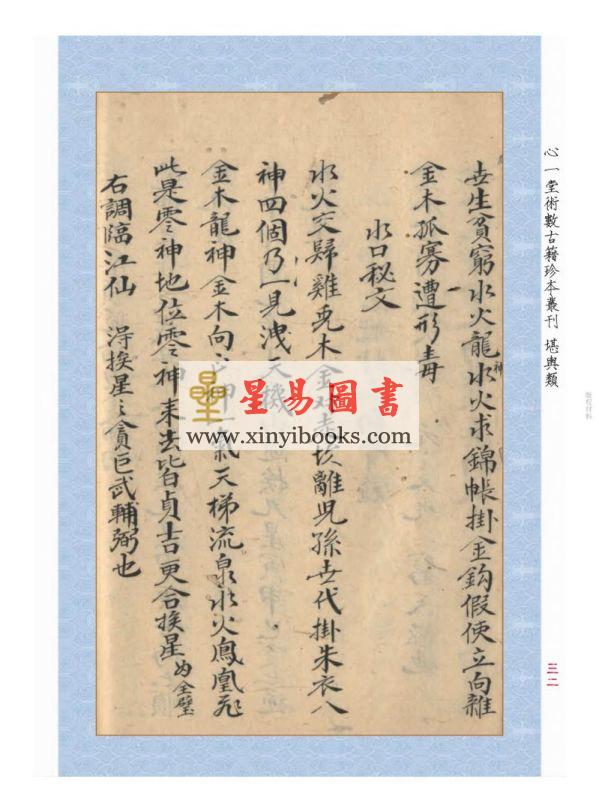 心一堂術數古籍珍本叢刊 堪輿類
世生貧窮水火龍神水火求錦帳掛金鈎假使立向雜
金木孤寡遭形毒
水口秘文
水火交歸雞兎木金
離兒孫世代掛朱衣八
神四個乃一見洩天機
金木龍神金木向
氣天梯流泉水火鳳凰飛
此是零神地位零神來去皆貞吉更合挨星為全璧
右調臨江仙 淂挨星〻貪巨武輔弼也
三二
版權材料
星易圖書
www.xinyibooks.com